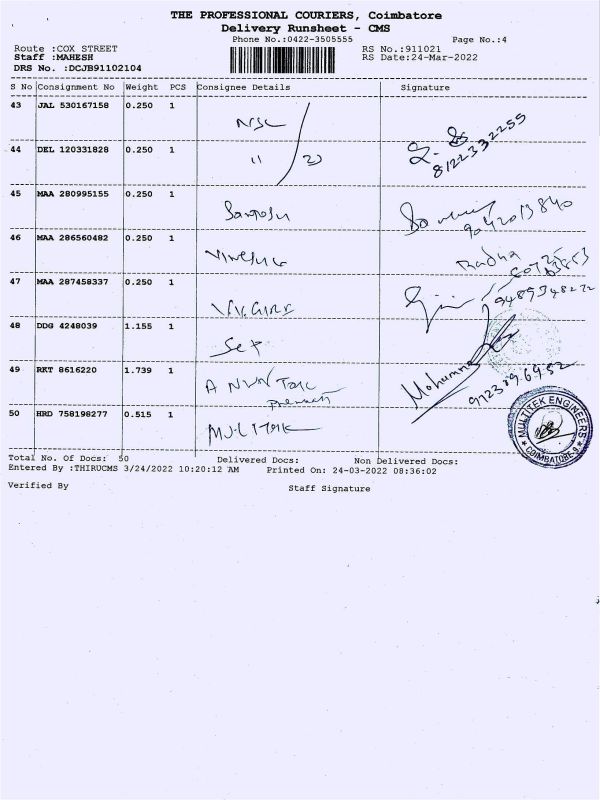 THE PROFESSIONAL COURIERS, Coimbatore
Delivery Runsheet - CMS
Phone No.:0422-3505555 Page No.:4
Route :COX STREET RS No.:911021
Staff :MAHESH RS Date:24-Mar-2022
DRS No. :DCJB91102104
S No Consignment No Weight PCS Consignee Details Signature
43 JAL 530167158 0.250 1
NSC
8122332255
44 DEL 120331828 0.250 1
45 MAA 280995155 0.250 1
Santosh
9042013840
46 MAA 286560482 0.250 1
Radha
47 MAA 287458337 0.250 1
9489348272
48 DDG 4248039 1.155 1
49 RKT 8616220 1.739 1
Mohumma
9123896952
50 HRD 758198277 0.515 1
MULTITEK ENGINEERS
COIMBATORE-9
Total No. Of Docs: 50 Delivered Docs: Non Delivered Docs:
Entered By :THIRUCMS 3/24/2022 10:20:12 AM Printed On: 24-03-2022 08:36:02
Verified By Staff Signature